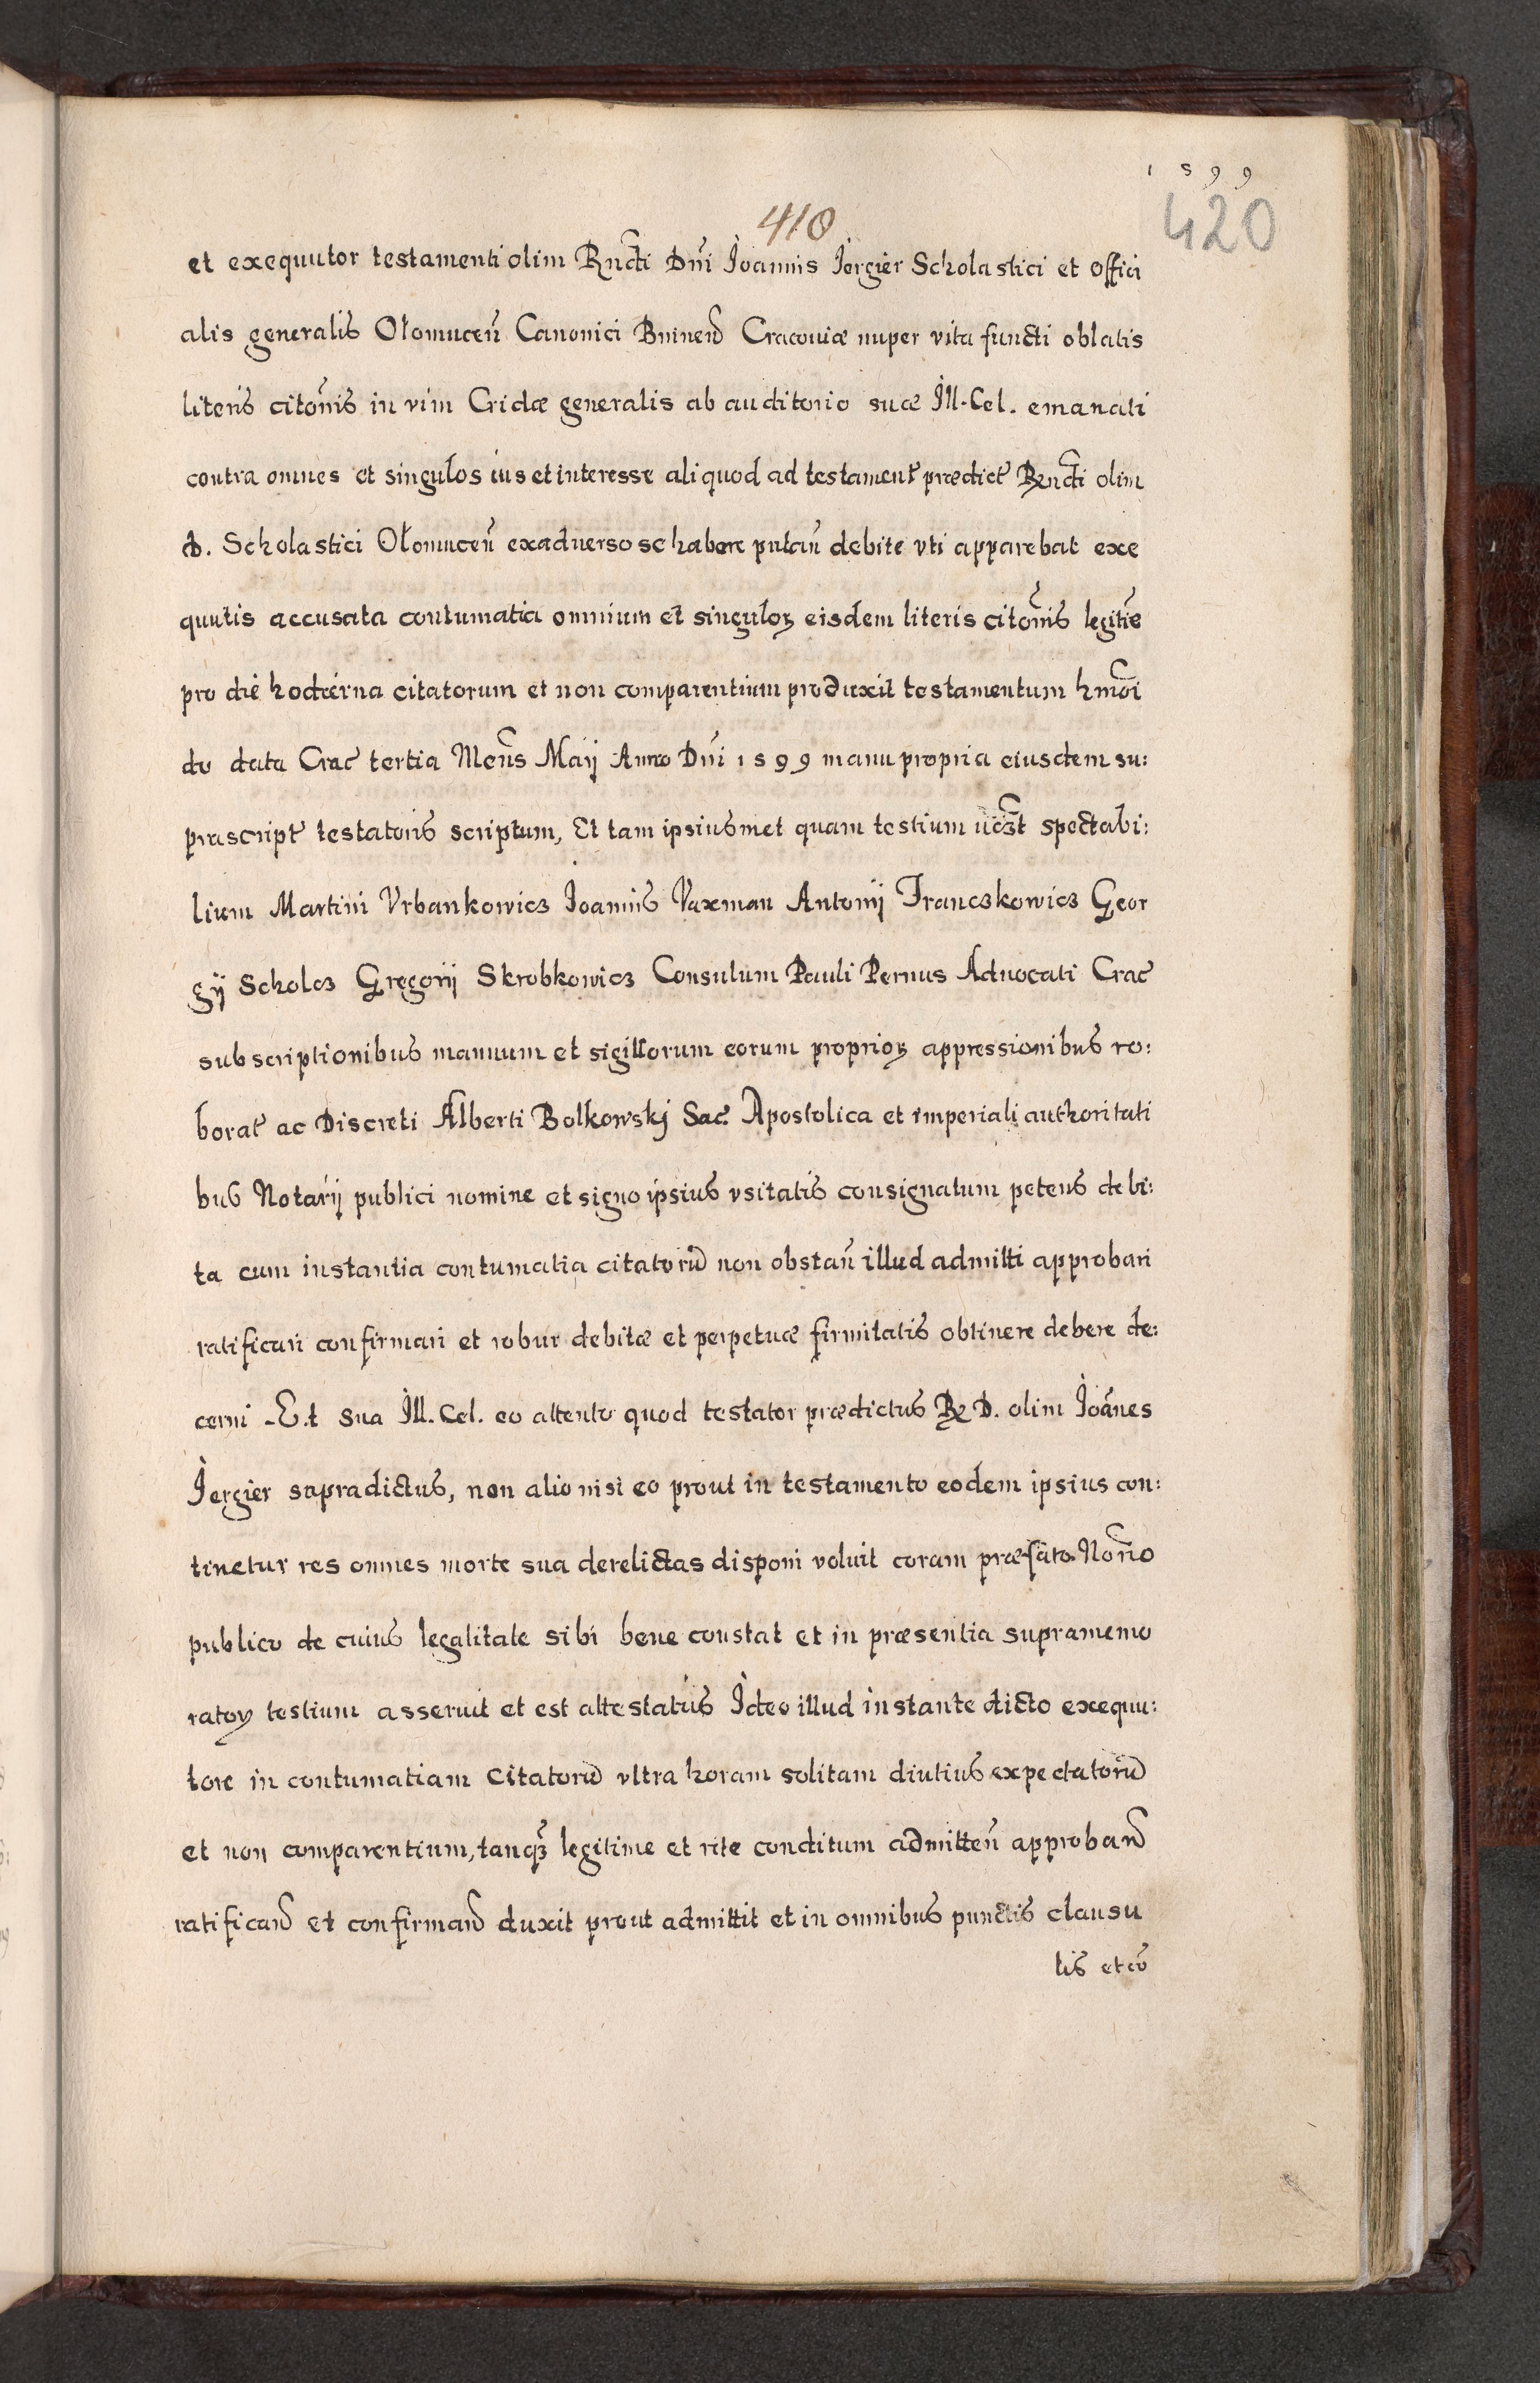 1599
420
410
et exequutor testamenti olim Rndi Dñi Joannis Jergier Scholastici et offici
alis generalis Olomuceñ Canonici Brunen Cracoviæ nuper vita functi oblatis
literis citonis in vim Cridæ generalis ab auditorio suæ Ill. Cel. emanati
contra omnes et singulos ius et interesse aliquod ad testament prædict Rndi olim
d. Scholastici Olomuceñ exadverso se habere putañ debite vti apparebat exe
quutis accusata contumatia omnium et singuloꝝ eisdem literis citonis legitie
pro die hodierna citatorum et non comparentium produxit testamentum hmoi
de data Crac tertia Mens Maij Anno Dñi 1599 manu propria eiusdem su:
prascript testatoris scriptum, Et tam ipsiusmet quam testium vczt spectabi:
lium Martini Vrbankowicz Joannis Vaxman Antonij Franczkowicz Geor
gij Scholcz Gregorij Skrobkowicz Consulum Pauli Pernus Advocati Crac
subscriptionibus manuum et sigillorum eorum proprioꝝ appressionibus ro:
borat ac Discreti Alberti Bolkowskj Sac. Apostolica et imperiali authoritati
bus Notarij publici nomine et signo ipsius vsitatis consignatum petens debi:
ta cum instantia contumatia citatorũ non obstañ illud admitti approbari
ratificari confirmari et robur debitæ et perpetuæ firmitatis obtinere debere de:
cerni Et sua Ill. Cel. eo attento quod testator prædictus R D. olim Joãnes
Jergier supradictus, non alio nisi eo prout in testamento eodem ipsius con:
tinetur res omnes morte sua derelictas disponi voluit coram præfato Norio
publico de cuius legalitate sibi bene constat et in præsentia supramemo
ratoꝝ testium asseruit et est attestatus Ideo illud instante dicto exequu:
tore in contumatiam citatorũ vltra horam solitam diutius expectatorũ
et non comparentium, tanqꝫ legitime et rite conditum admitteñ approband
ratificand et confirmand duxit prout admittit et in omnibus punctis clausu
lis et co